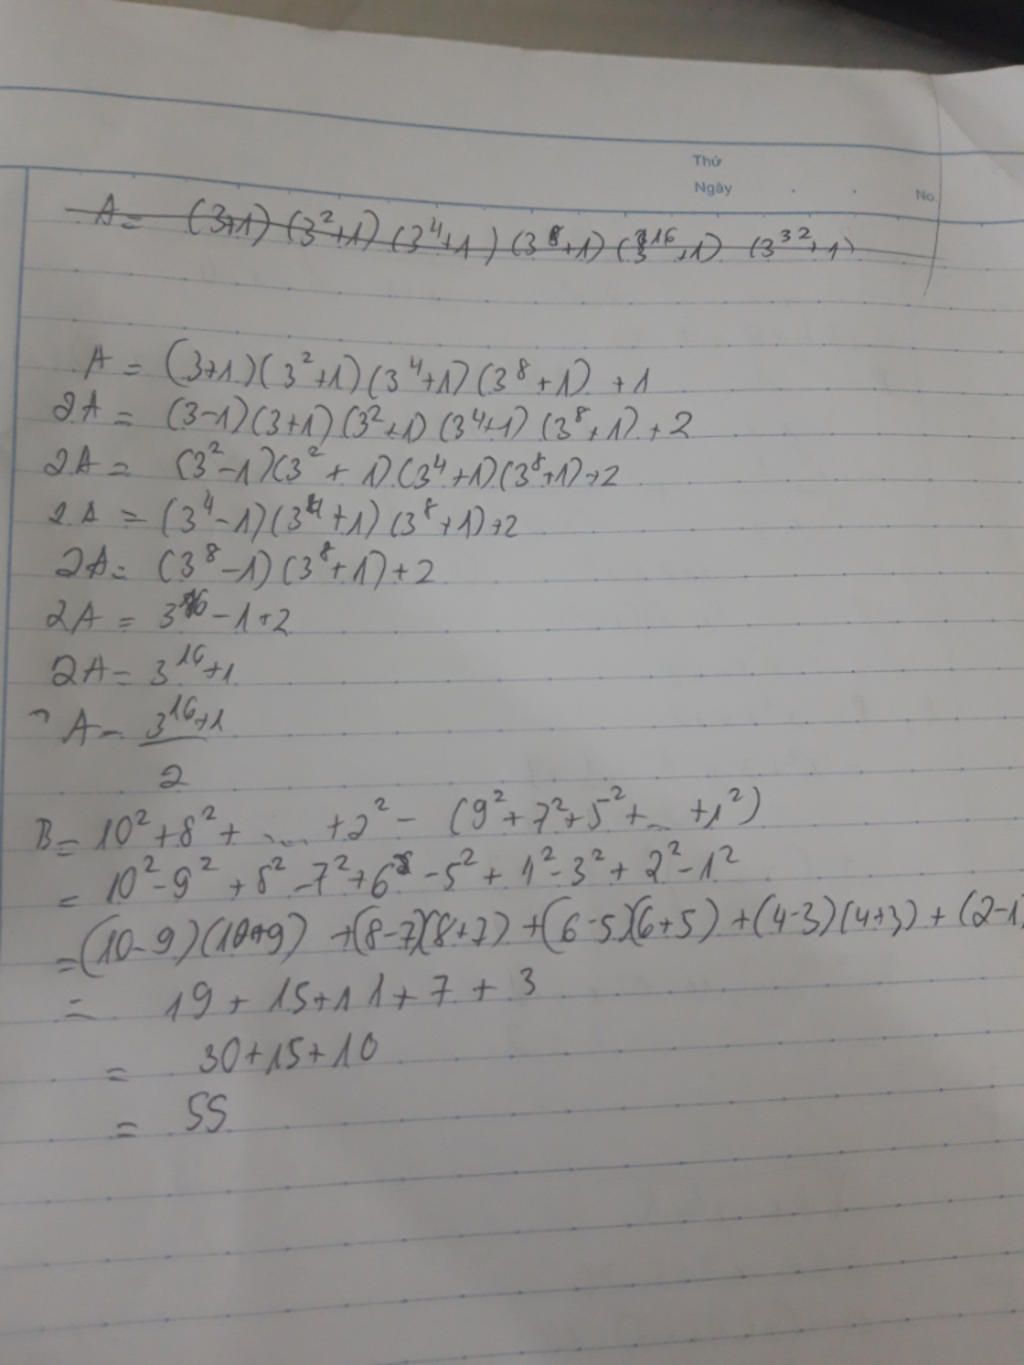 Thứ
Ngày . . No.
A = (3+1) (3²+1) (3⁴+1) (3⁸+1) (3¹⁶+1) (3³²+1)
A = (3+1)(3²+1)(3⁴+1)(3⁸+1) +1
2A = (3-1)(3+1)(3²+1)(3⁴+1)(3⁸+1)+2
2A = (3²-1)(3²+1)(3⁴+1)(3⁸+1)+2
2A = (3⁴-1)(3⁴+1)(3⁸+1)+2
2A = (3⁸-1)(3⁸+1)+2
2A = 3¹⁶-1+2
2A = 3¹⁶+1
A = 3¹⁶+1
2
B = 10²+8²+ ... +2² - (9²+7²+5²+ ... +1²)
= 10²-9²+8²-7²+6²-5²+4²-3²+2²-1²
= (10-9)(10+9) +(8-7)(8+7) +(6-5)(6+5) +(4-3)(4+3) + (2-1)
= 19+15+11+7+3
= 30+15+10
= 55